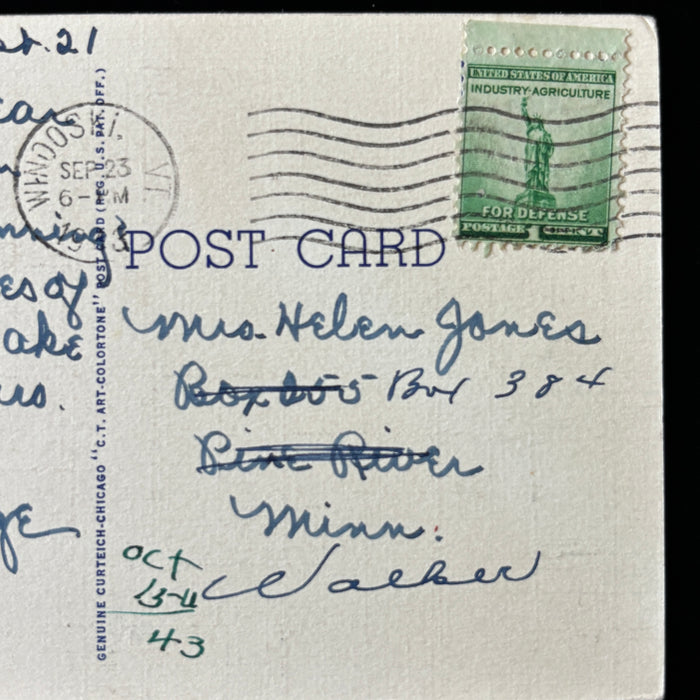 UNITED STATES OF AMERICA
INDUSTRY-AGRICULTURE
FOR DEFENSE
POSTAGE 1 CENT
21
WINOOSKI, VT.
SEP 23
6- PM
POST CARD
GENUINE CURTEICH-CHICAGO "C.T. ART-COLORTONE" POST CARD (REG. U.S. PAT. OFF.)
es of
ake
Mrs. Helen Jones
Box 255 Box 384
Pine River
Minn.
Walker
OCT
43